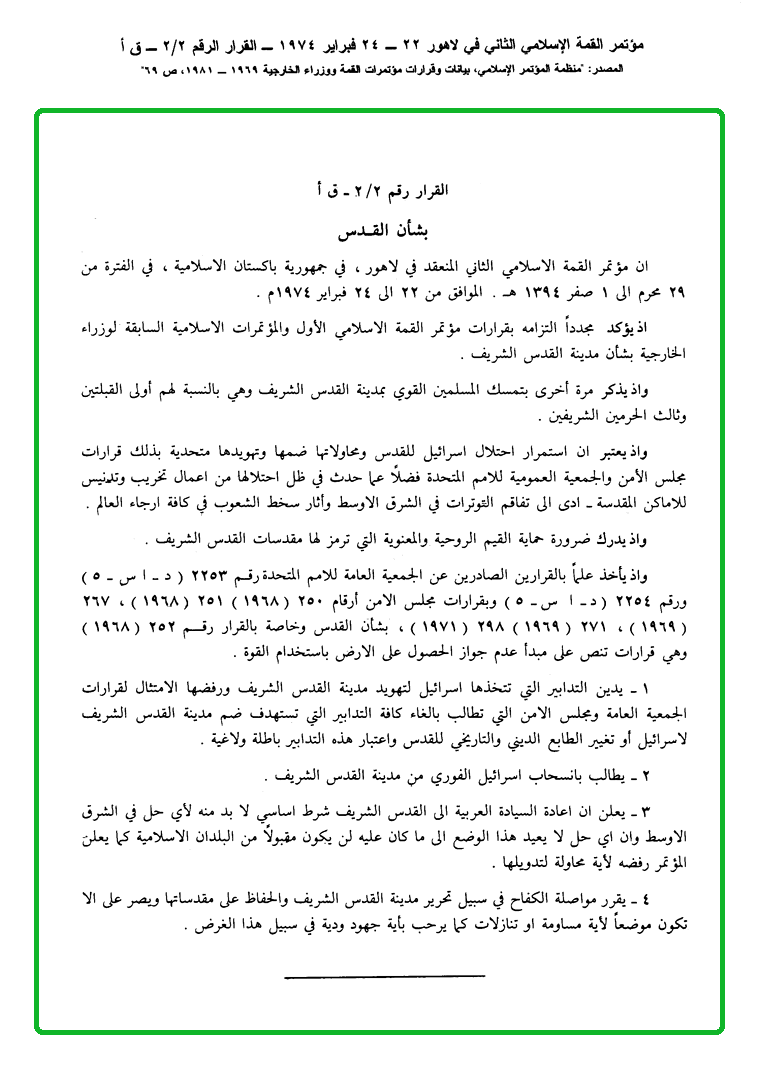 مؤتمر القمة الإسلامي الثاني في لاهور ٢٢ ــ ٢٤ فبراير ١٩٧٤ ــ القرار الرقم ٢/٢ ــ ق أ
المصدر: "منظمة المؤتمر الإسلامي، بيانات وقرارات مؤتمرات القمة ووزراء الخارجية ١٩٦٩ ــ ١٩٨١، ص ٦٩"
القرار رقم ٢/٢ ـ ق أ
بشأن القـدس
ان مؤتمر القمة الاسلامي الثاني المنعقد في لاهور ، في جمهورية باكستان الاسلامية ، في الفترة من
٢٩ محرم الى ١ صفر ١٣٩٤ هـ . الموافق من ٢٢ الى ٢٤ فبراير ١٩٧٤م .
اذ يؤكد مجدداً التزامه بقرارات مؤتمر القمة الاسلامي الأول والمؤتمرات الاسلامية السابقة لوزراء
الخارجية بشأن مدينة القدس الشريف .
واذ يذكر مرة أخرى بتمسك المسلمين القوي بمدينة القدس الشريف وهي بالنسبة لهم أولى القبلتين
وثالث الحرمين الشريفين .
واذ يعتبر ان استمرار احتلال اسرائيل للقدس ومحاولاتها ضمها وتهويدها متحدية بذلك قرارات
مجلس الأمن والجمعية العمومية للامم المتحدة فضلاً عما حدث في ظل احتلالها من اعمال تخريب وتدنيس
للاماكن المقدسة ـ ادى الى تفاقم التوترات في الشرق الاوسط وأثار سخط الشعوب في كافة ارجاء العالم .
واذ يدرك ضرورة حماية القيم الروحية والمعنوية التي ترمز لها مقدسات القدس الشريف .
واذ يأخذ علماً بالقرارين الصادرين عن الجمعية العامة للامم المتحدة رقم ٢٢٥٣ ( د ـ ا س ـ ٥ )
ورقم ٢٢٥٤ ( د ـ ا س ـ ٥ ) وبقرارات مجلس الامن أرقام ٢٥٠ ( ١٩٦٨ ) ٢٥١ ( ١٩٦٨ ) ، ٢٦٧
( ١٩٦٩ ) ، ٢٧١ ( ١٩٦٩ ) ٢٩٨ ( ١٩٧١ ) ، بشأن القدس وخاصة بالقرار رقـم ٢٥٢ ( ١٩٦٨ )
وهي قرارات تنص على مبدأ عدم جواز الحصول على الارض باستخدام القوة .
١ ـ يدين التدابير التي تتخذها اسرائيل لتهويد مدينة القدس الشريف ورفضها الامتثال لقرارات
الجمعية العامة ومجلس الامن التي تطالب بالغاء كافة التدابير التي تستهدف ضم مدينة القدس الشريف
لاسرائيل أو تغيير الطابع الديني والتاريخي للقدس واعتبار هذه التدابير باطلة ولاغية .
٢ ـ يطالب بانسحاب اسرائيل الفوري من مدينة القدس الشريف .
٣ ـ يعلن ان اعادة السيادة العربية الى القدس الشريف شرط اساسي لا بد منه لأي حل في الشرق
الاوسط وان اي حل لا يعيد هذا الوضع الى ما كان عليه لن يكون مقبولاً من البلدان الاسلامية كما يعلن
المؤتمر رفضه لأية محاولة لتدويلها .
٤ ـ يقرر مواصلة الكفاح في سبيل تحرير مدينة القدس الشريف والحفاظ على مقدساتها ويصر على الا
تكون موضعاً لأية مساومة او تنازلات كما يرحب بأية جهود ودية في سبيل هذا الغرض .